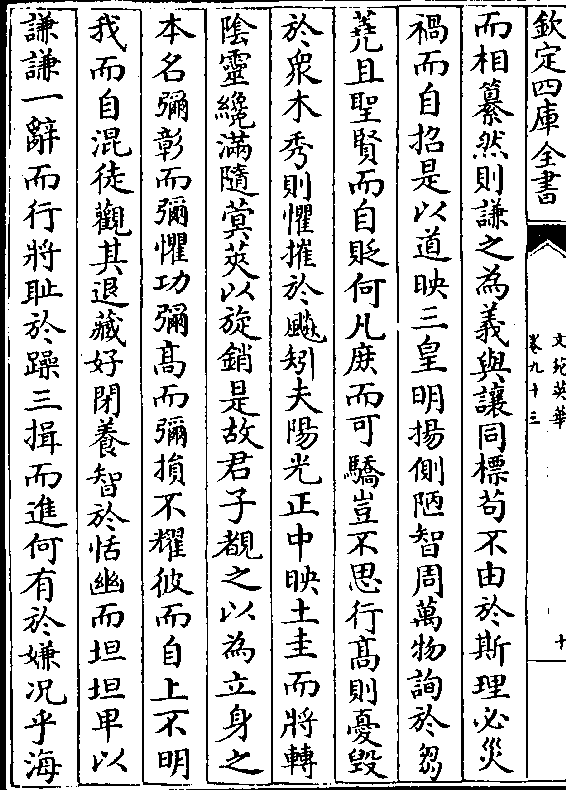 欽定四庫全書
文苑英華
卷九十三
十
而相纂然則謙之為義與讓同標苟不由於斯理必災
禍而自招是以道映三皇明揚側陋智周萬物詢於芻
蕘且聖賢而自貶何凡庶而可驕豈不思行高則憂毀
於衆木秀則懼摧於飈矧夫陽光正中映土圭而將轉
陰靈纔滿隨蓂莢以旋銷是故君子覩之以為立身之
本名彌彰而彌懼功彌高而彌損不耀彼而自上不明
我而自混徒觀其退藏好閉養智於恬幽而坦坦卑以
謙謙一辭而行將耻於躁三揖而進何有於嫌况乎海